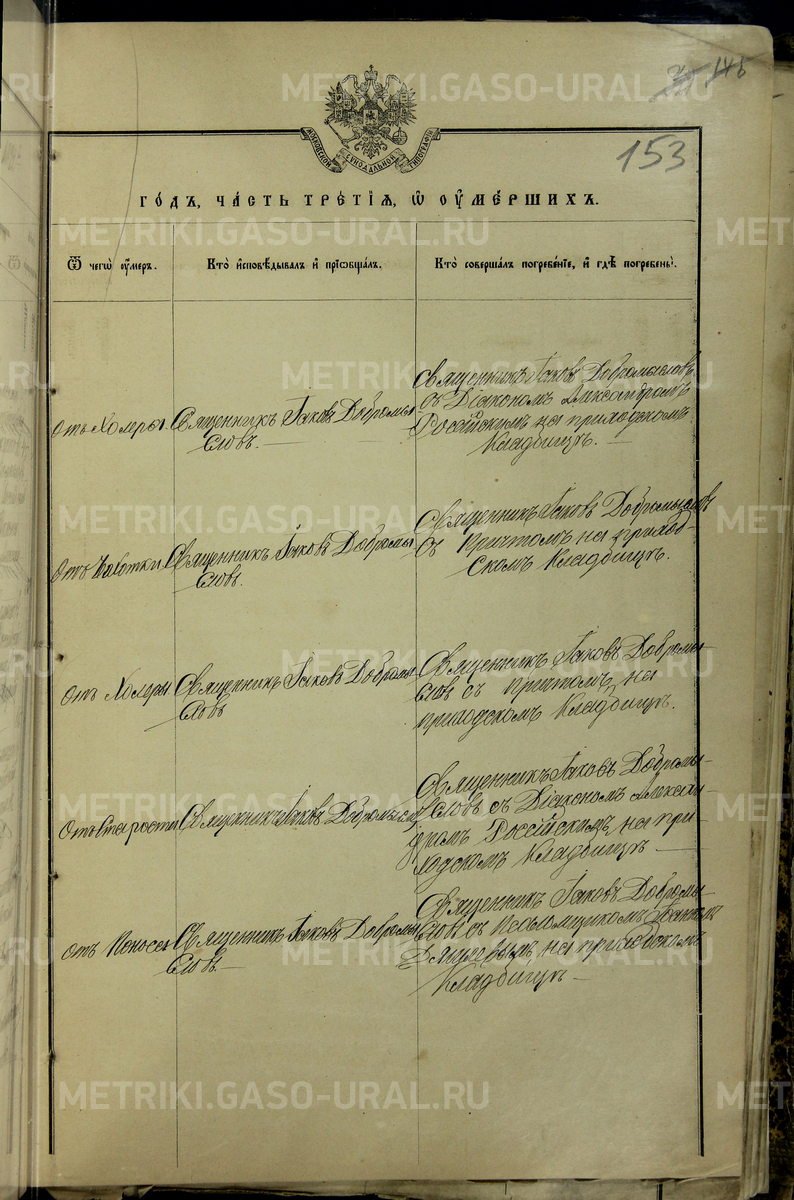 145
153
МОСКОВСКОЙ СѴНОДАЛЬНОЙ ТИПОГРАФІИ
ГО́ДЪ, ЧА́СТЬ ТРЕ́ТІѦ, Ѽ ОУ҆МЕ́РШИХЪ.
Ѿ чегѡ̀ ᲂу҆́меръ.
Кто̀ и҆сповѣ́дывалъ и҆ приѡбща́лъ.
Кто̀ соверша́лъ погребе́нїе, и҆ гдѣ̀ погребены̀.
Отъ Холеры
Священникъ Іаковъ Добромы
словъ.
Священникъ Іаковъ Добромысловъ
съ Діакономъ Александромъ
Россійскимъ на приходскомъ
Кладбищѣ.
Отъ Чахотки
Священникъ Іаковъ Добромы
словъ.
Священникъ Іаковъ Добромысловъ
съ Причтомъ на приход-
скомъ Кладбищѣ.
Отъ Холеры
Священникъ Іаковъ Добромы
словъ
Священникъ Іаковъ Добромы-
словъ съ причтомъ, на
приходскомъ Кладбищѣ.
Отъ Старости
Священникъ Іаковъ Добромысл
Священникъ Іаковъ Добромы-
словъ съ Діакономъ Алексан-
дромъ Россійскимъ, на при-
ходскомъ Кладбищѣ
Отъ Поноса
Священникъ Іаковъ Добромы
словъ
Священникъ Іаковъ Добромы-
словъ съ Псаломщикомъ
на приходскомъ
Кладбищѣ
METRIKI.GASO-URAL.RU